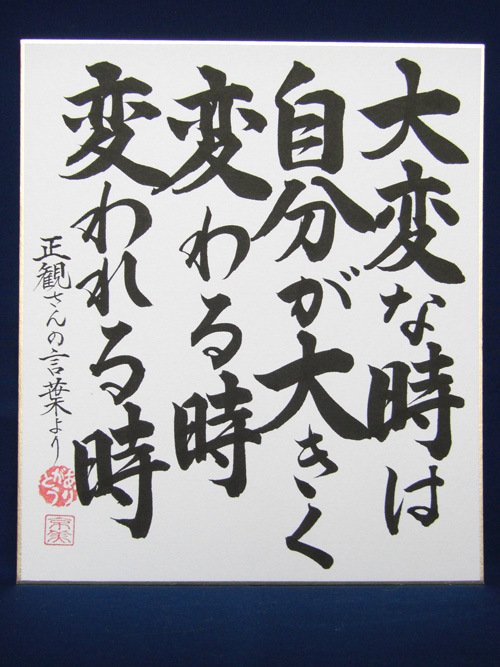 大変な時は
自分が大きく
変わる時
変われる時
正観さんの言葉より
ありがとう
京美